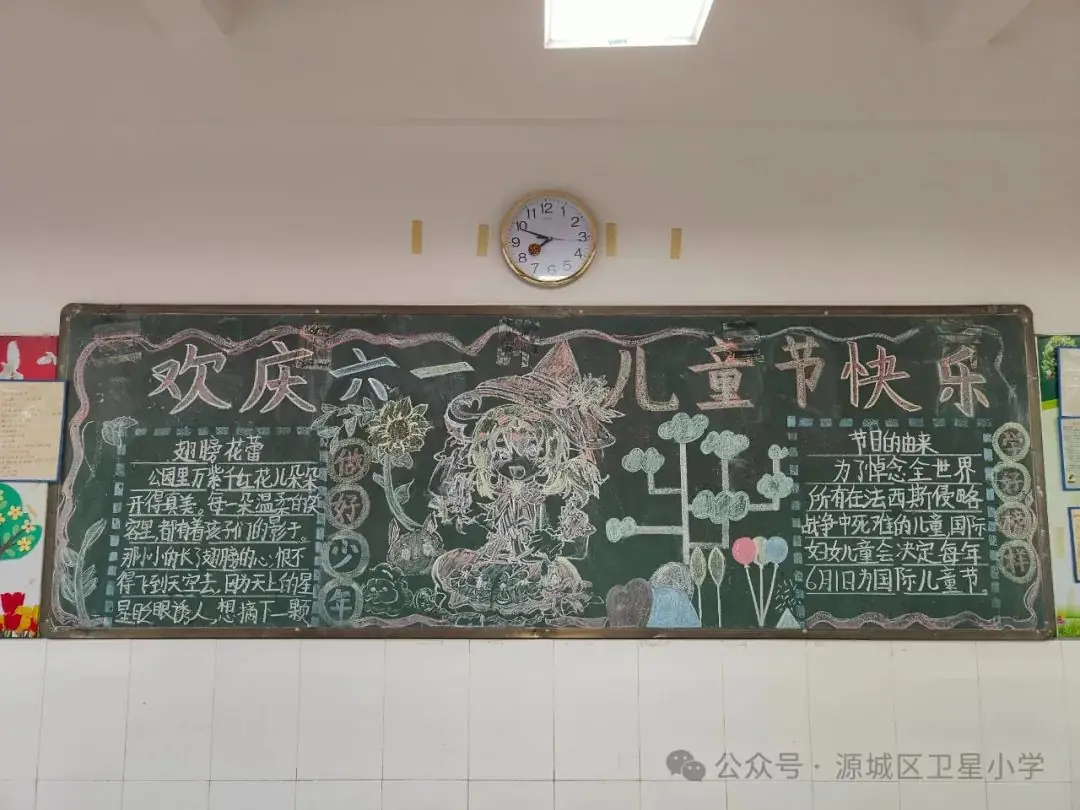 欢庆六一儿童节快乐
翅膀花蕾
公园里万紫千红花儿朵朵
开得真美。每一朵温柔的笑
容里,都有着孩子们的影子。
那小小的长了翅膀的心,恨不
得飞到天空去,因为天上的星
星眨眼诱人,想摘下一颗
做好少年
节日的由来
为了悼念全世界
所有在法西斯侵略
战争中死难的儿童国际
妇女儿童会决定每年
6月1日为国际儿童节。
学好榜样
12
1
2
3
4
5
6
7
8
9
10
11
公众号·源城区卫星小学